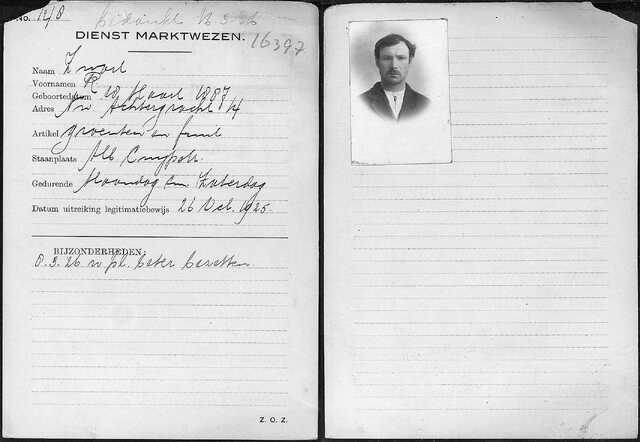 No. 12/8 bedankt 12 3 26
DIENST MARKTWEZEN. 16397
Naam Zwart
Voornamen R
Geboortedatum 19 Maart 1887
Adres Nw Achtergracht 14
Artikel groenten en fruit
Staanplaats Alb Cuypstr.
Gedurende Maandag t/m Zaterdag
Datum uitreiking legitimatiebewijs 26 Oct. 1925.
BIJZONDERHEDEN:
3. 26 pl.
Z. O. Z.